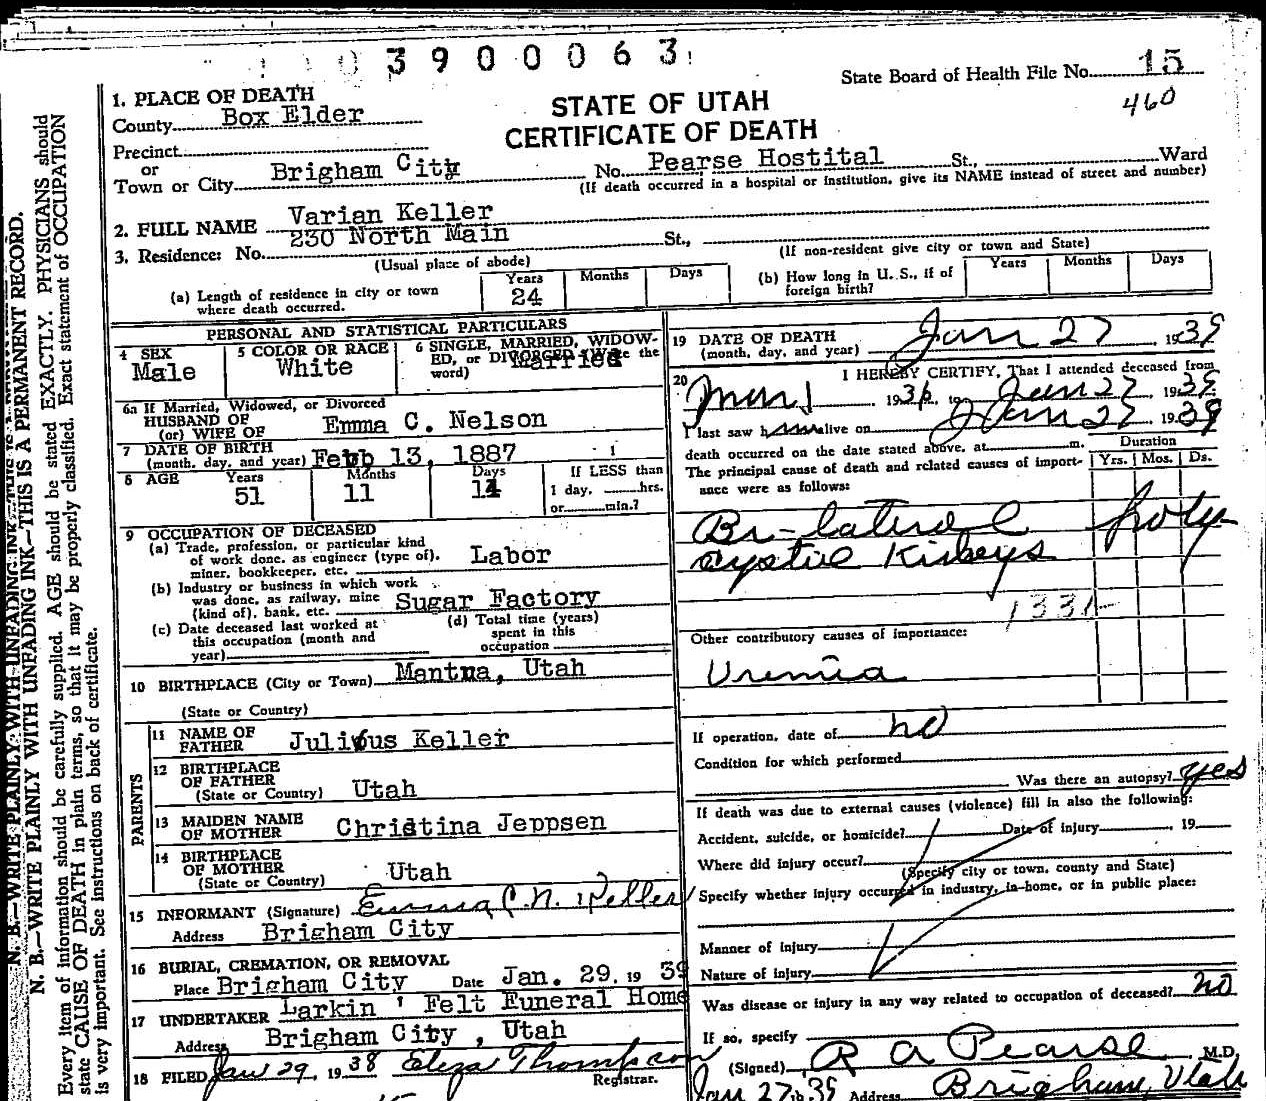 3900063
State Board of Health File No. 15
460
STATE OF UTAH
CERTIFICATE OF DEATH
1. PLACE OF DEATH
County Box Elder
Precinct
or
Town or City Brigham City No. Pearse Hostital St., Ward
(If death occurred in a hospital or institution, give its NAME instead of street and number)
2. FULL NAME Varian Keller
3. Residence: No. 230 North Main St.,
(Usual place of abode) (If non-resident give city or town and State)
(a) Length of residence in city or town where death occurred. Years 24 Months Days
(b) How long in U. S., if of foreign birth? Years Months Days
PERSONAL AND STATISTICAL PARTICULARS
4 SEX Male
5 COLOR OR RACE White
6 SINGLE, MARRIED, WIDOWED, or DIVORCED (Write the word) Married
6a If Married, Widowed, or Divorced
HUSBAND OF
(or) WIFE OF Emma C. Nelson
7 DATE OF BIRTH
(month, day, and year) Feb 13, 1887
8 AGE Years 51 Months 11 Days 14
If LESS than
1 day, hrs.
or min.?
9 OCCUPATION OF DECEASED
(a) Trade, profession, or particular kind
of work done, as engineer (type of),
miner, bookkeeper, etc. Labor
(b) Industry or business in which work
was done, as railway, mine
(kind of), bank, etc. Sugar Factory
(c) Date deceased last worked at
this occupation (month and
year)
(d) Total time (years)
spent in this
occupation
10 BIRTHPLACE (City or Town) Mantua, Utah
(State or Country)
PARENTS
11 NAME OF
FATHER Julius Keller
12 BIRTHPLACE
OF FATHER
(State or Country) Utah
13 MAIDEN NAME
OF MOTHER Christina Jeppsen
14 BIRTHPLACE
OF MOTHER
(State or Country) Utah
15 INFORMANT (Signature) Emma C. N. Keller
Address Brigham City
16 BURIAL, CREMATION, OR REMOVAL
Place Brigham City Date Jan. 29. 19 39
17 UNDERTAKER Larkin ' Felt Funeral Home
Address Brigham City, Utah
18 FILED Jan 29, 1938 Eliza Thompson
Registrar.
19 DATE OF DEATH
(month, day, and year) Jan 27, 1939
20 I HEREBY CERTIFY, That I attended deceased from
Mar 1 1936, to Jan 27, 1939
I last saw him alive on Jan 27, 1939
death occurred on the date stated above, at m.
The principal cause of death and related causes of importance were as follows:
Duration
Yrs. Mos. Ds.
Bi-lateral poly-
cystic Kidneys
133
Other contributory causes of importance:
Uremia
If operation, date of no
Condition for which performed
Was there an autopsy? yes
If death was due to external causes (violence) fill in also the following:
Accident, suicide, or homicide? Date of injury , 19
Where did injury occur?
(Specify city or town, county and State)
Specify whether injury occurred in industry, in home, or in public place:
Manner of injury
Nature of injury
Was disease or injury in any way related to occupation of deceased? no
If so, specify
(Signed) R A Pearse M.D.
Jan 27 1939 Address Brigham, Utah
N. B.—WRITE PLAINLY WITH UNFADING INK—THIS IS A PERMANENT RECORD.
Every item of information should be carefully supplied. AGE should be stated EXACTLY. PHYSICIANS should
state CAUSE OF DEATH in plain terms, so that it may be properly classified. Exact statement of OCCUPATION
is very important. See instructions on back of certificate.